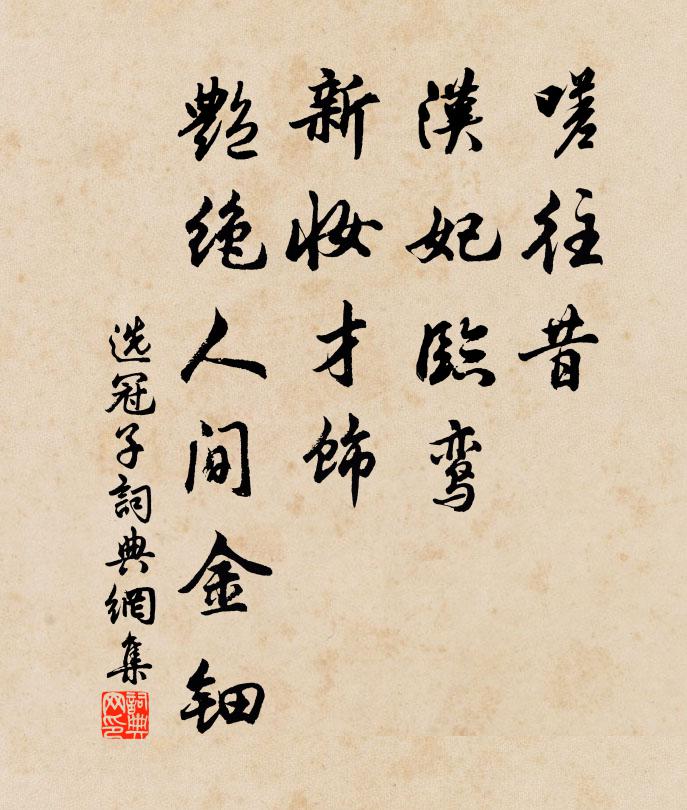 嗟往昔
漢妃臨鸾
新妆才飾
艷绝人间金钿
选冠子詞典網集
詞典网印